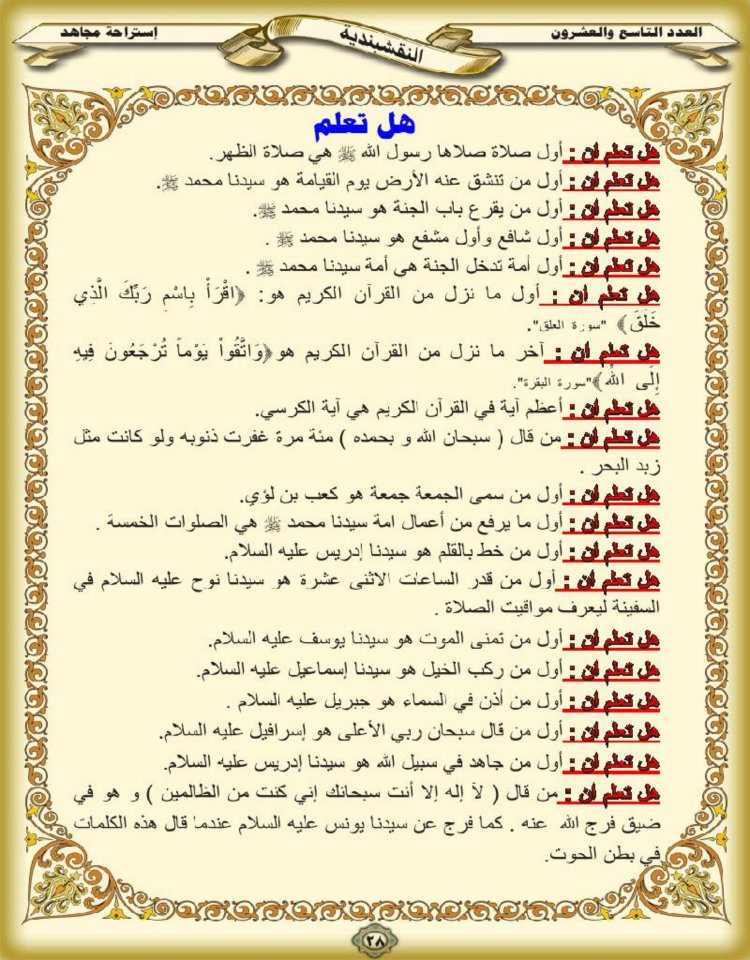 العدد التاسع والعشرون
النقشبندية
إستراحة مجاهد
هل تعلم
هل تعلم أن : أول صلاة صلاها رسول الله ﷺ هي صلاة الظهر.
هل تعلم أن : أول من تنشق عنه الأرض يوم القيامة هو سيدنا محمد ﷺ.
هل تعلم أن : أول من يقرع باب الجنة هو سيدنا محمد ﷺ.
هل تعلم أن : أول شافع وأول مشفع هو سيدنا محمد ﷺ .
هل تعلم أن : أول أمة تدخل الجنة هي أمة سيدنا محمد ﷺ .
هل تعلم أن : أول ما نزل من القرآن الكريم هو: ﴿اقْرَأْ بِاسْمِ رَبِّكَ الَّذِي
خَلَقَ﴾ "سورة العلق".
هل تعلم أن : آخر ما نزل من القرآن الكريم هو﴿وَاتَّقُواْ يَوْماً تُرْجَعُونَ فِيهِ
إِلَى اللّهِ﴾"سورة البقرة".
هل تعلم أن : أعظم آية في القرآن الكريم هي آية الكرسي.
هل تعلم أن : من قال ( سبحان الله و بحمده ) مئة مرة غفرت ذنوبه ولو كانت مثل
زبد البحر .
هل تعلم أن : أول من سمى الجمعة جمعة هو كعب بن لؤي.
هل تعلم أن : أول ما يرفع من أعمال امة سيدنا محمد ﷺ هي الصلوات الخمسة .
هل تعلم أن : أول من خط بالقلم هو سيدنا إدريس عليه السلام.
هل تعلم أن : أول من قدر الساعات الاثنى عشرة هو سيدنا نوح عليه السلام في
السفينة ليعرف مواقيت الصلاة .
هل تعلم أن : أول من تمنى الموت هو سيدنا يوسف عليه السلام.
هل تعلم أن : أول من ركب الخيل هو سيدنا إسماعيل عليه السلام.
هل تعلم أن : أول من أذن في السماء هو جبريل عليه السلام .
هل تعلم أن : أول من قال سبحان ربي الأعلى هو إسرافيل عليه السلام.
هل تعلم أن : أول من جاهد في سبيل الله هو سيدنا إدريس عليه السلام.
هل تعلم أن : من قال ( لآ إله إلا أنت سبحانك إني كنت من الظالمين ) و هو في
ضيق فرج الله عنه . كما فرج عن سيدنا يونس عليه السلام عندما قال هذه الكلمات
في بطن الحوت.
٢٨